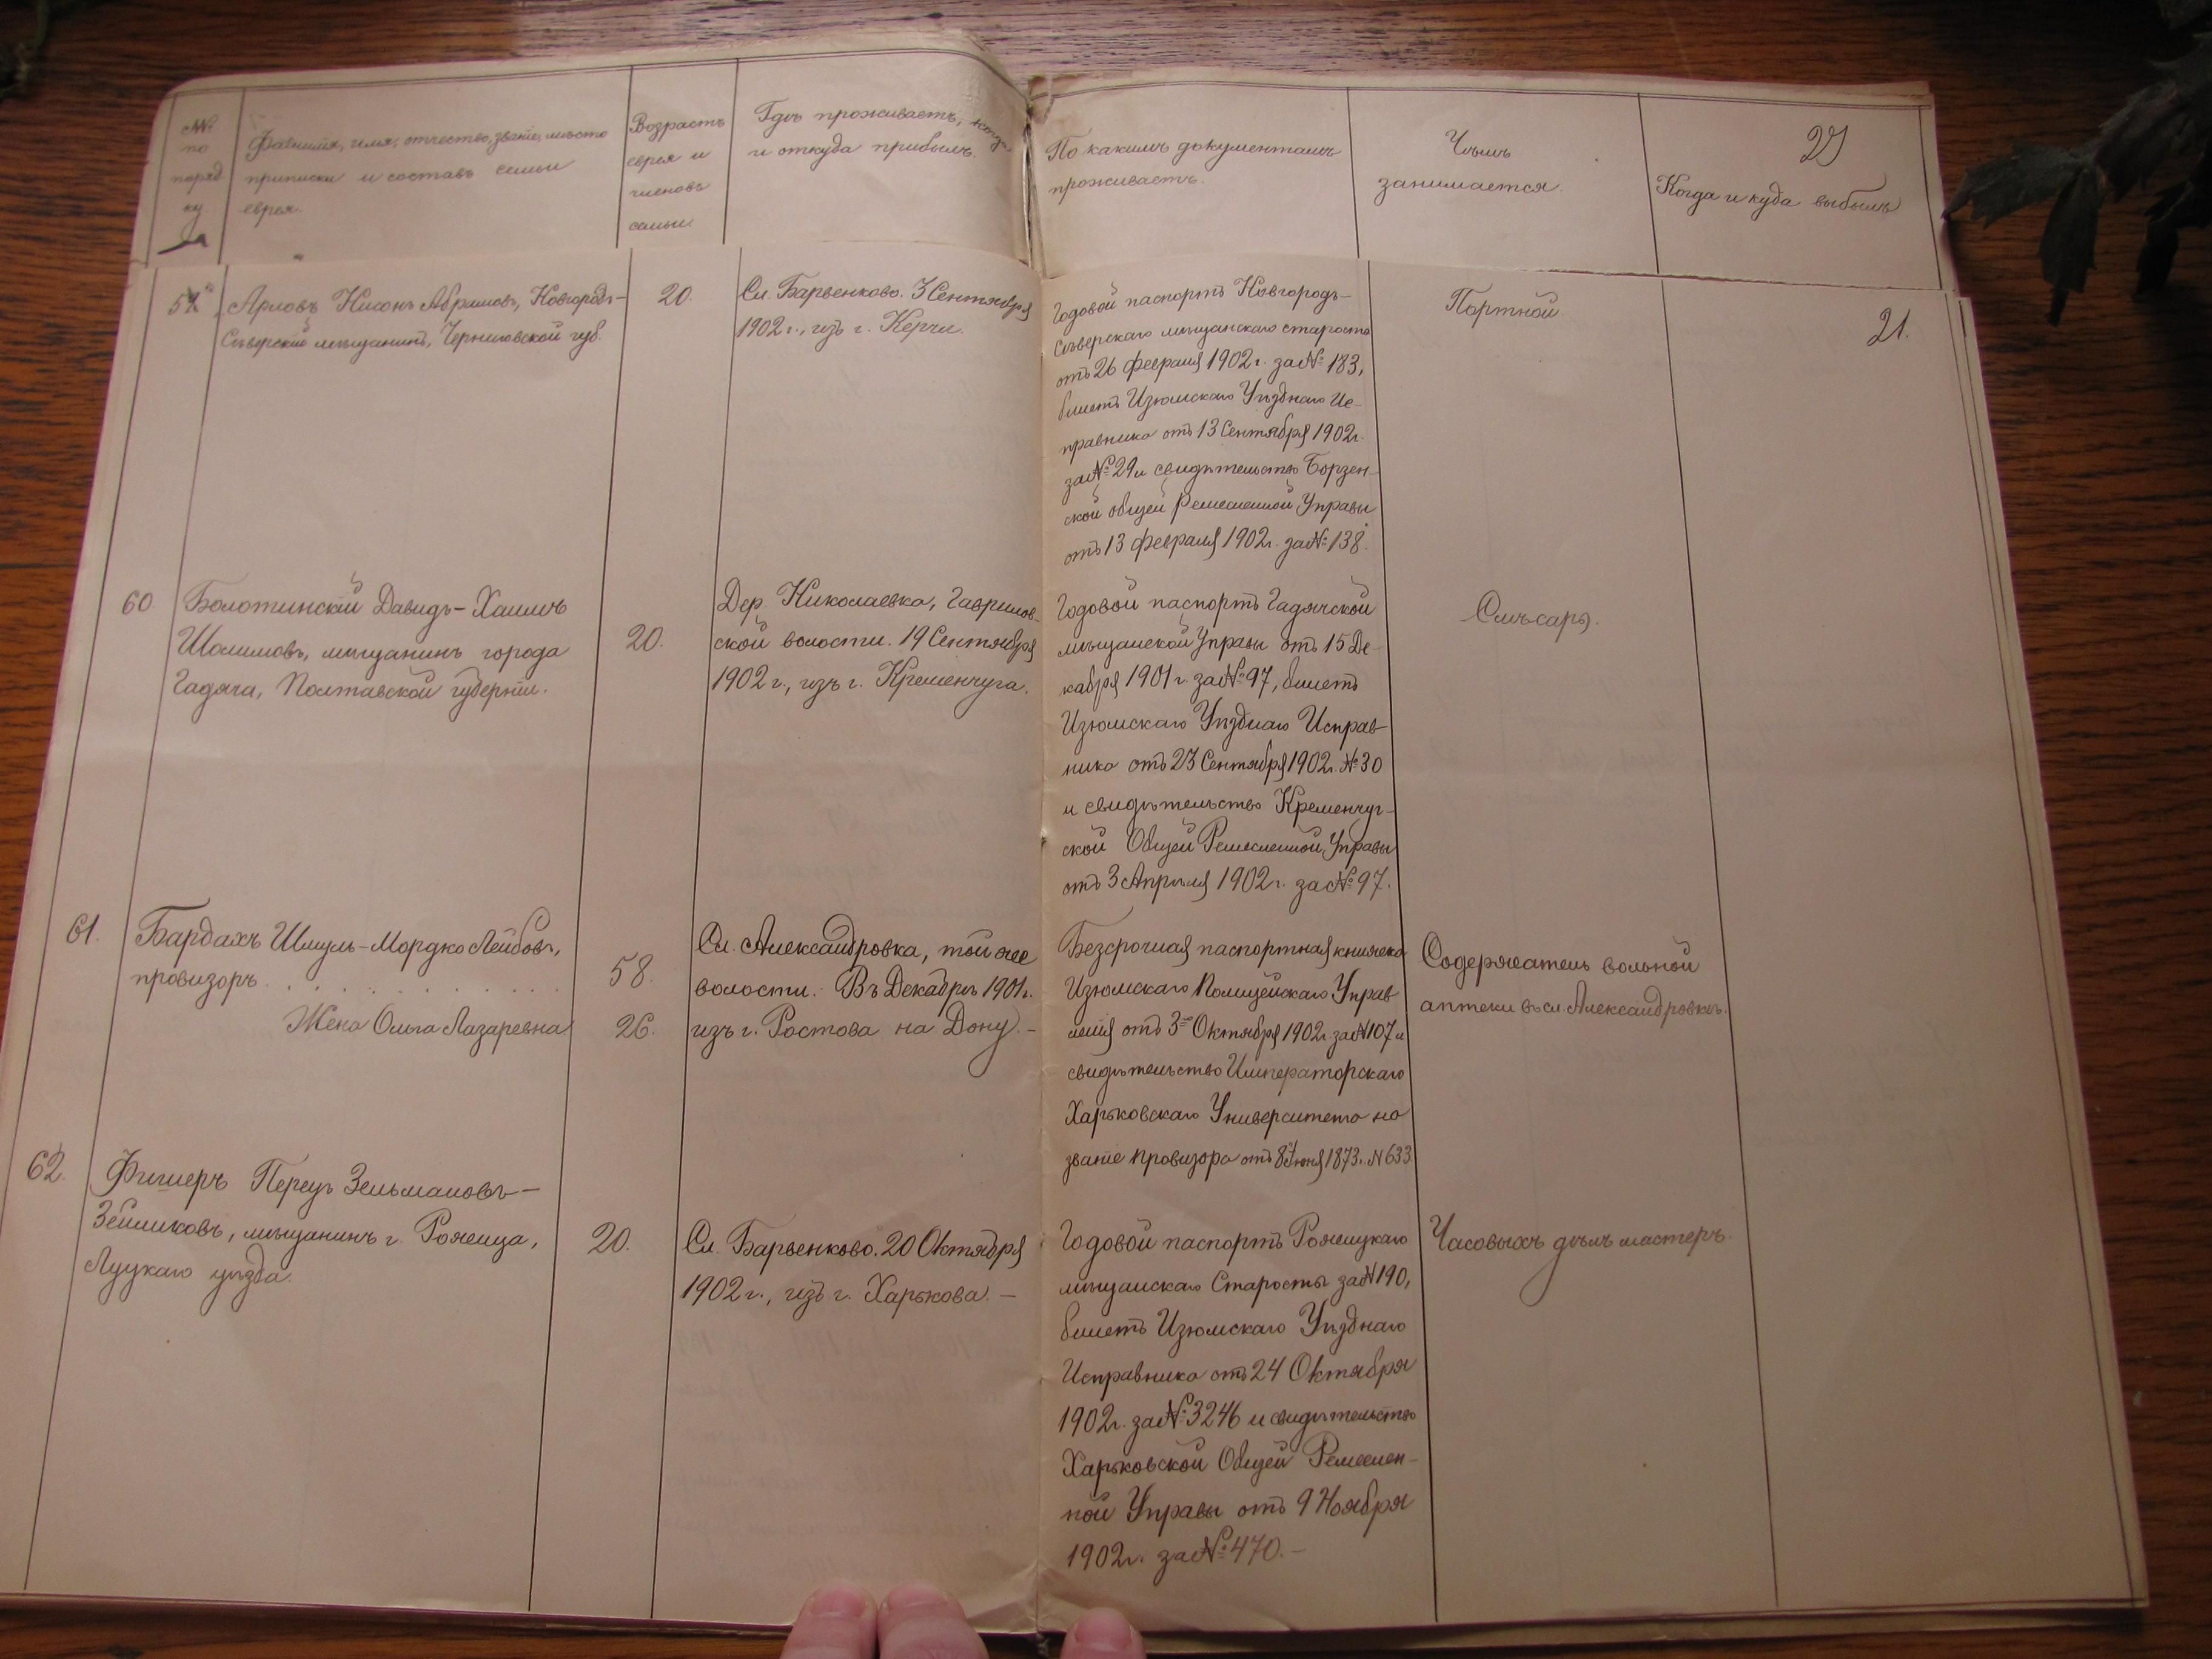 №№ по поряд ку
Фамилія, имя, отчество, званіе, мѣсто
приписки и составъ семьи
еврея.
Возрастъ
еврея и
членовъ
семьи
Гдѣ проживаетъ, когда
и откуда прибылъ.
По какимъ документамъ
проживаетъ.
Чѣмъ
занимается.
Когда и куда выбылъ
21.
Арловъ Нисонъ Абрамовъ, Новгородъ-
Сѣверскій мѣщанинъ, Черниговской губ.
20.
Сл. Барвенково. 3 Сентября
1902 г., изъ г. Керчи.
Годовой паспортъ Новгородъ-
Сѣверскаго мѣщанскаго старосты
отъ 26 февраля 1902 г. за № 183,
билетъ Изюмскаго Уѣзднаго Ис-
правника отъ 13 Сентября 1902 г.
за № 29 и свидѣтельство Борзен-
ской общей Ремесленной Управы
отъ 13 февраля 1902 г. за № 138.
Портной.
60.
Болотинскій Давидъ-Хаимъ
Шолимовъ, мѣщанинъ города
Гадяча, Полтавской губерніи.
20.
Дер. Николаевка, Гаврилов-
ской волости. 19 Сентября
1902 г., изъ г. Кременчуга.
Годовой паспортъ Гадячской
мѣщанской Управы отъ 15 Де-
кабря 1901 г. за № 97, билетъ
Изюмскаго Уѣзднаго Исправ-
ника отъ 23 Сентября 1902 г. № 30
и свидѣтельство Кременчуг-
ской Общей Ремесленной Управы
отъ 3 Апрѣля 1902 г. за № 97.
Слѣсарь.
61.
Бардахъ Шмуль-Мордко Лейбовъ,
провизоръ . . . . . . . . .
Жена Ольга Лазаревна
58.
26.
Сл. Александровка, той же
волости. Въ Декабрѣ 1901 г.
изъ г. Ростова на Дону. -
Безсрочная паспортная книжка
Изюмскаго Полицейскаго Управ
ленія отъ 3 Октября 1902 г. за № 107 и
свидѣтельство Императорскаго
Харьковскаго Университета на
званіе провизора отъ 8 Іюня 1873 г. № 633
Содержатель вольной
аптеки въ сл. Александровкѣ.
62.
Фишеръ Перецъ Зельмановъ-
Зейликовъ, мѣщанинъ г. Рожища,
Луцкаго уѣзда.
20.
Сл. Барвенково. 20 Октября
1902 г., изъ г. Харькова. -
Годовой паспортъ Рожищкаго
мѣщанскаго Старосты за № 190,
билетъ Изюмскаго Уѣзднаго
Исправника отъ 24 Октября
1902 г. за № 3246 и свидѣтельство
Харьковской Общей Ремеслен-
ной Управы отъ 9 Ноября
1902 г. за № 470. -
Часовыхъ дѣлъ мастеръ.